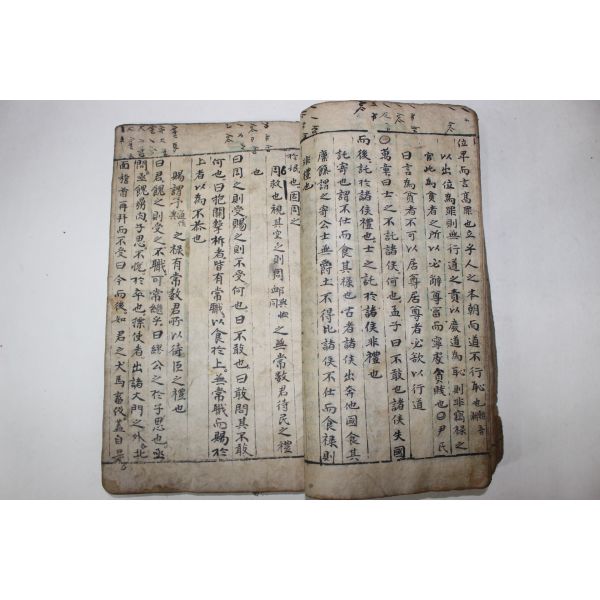 位卑而言高罪也立乎人之本朝而道不行恥也
以出位為罪則無行道之責以廢道為恥則非竊祿之
官此為貧者之所以必辭尊富而寧處貧賤也○尹氏
曰言為貧者不可以居尊居尊者必欲以行道
○萬章曰士之不託諸侯何也孟子曰不敢也諸侯失國
而後託於諸侯禮也士之託於諸侯非禮也
託寄也謂不仕而食其祿也古者諸侯出奔他國食其
廩餼謂之寄公士無爵土不得比諸侯不仕而食祿則
非禮也
於氓也固周之
周救也視其空乏則周卹之無常數君待民之禮
也
曰周之則受賜之則不受何也曰不敢也曰敢問其不敢
何也曰抱關擊柝者皆有常職以食於上無常職而賜於
上者以為不恭也
賜謂予之祿有常數君所以待臣之禮也
曰君餽之則受之不職可常繼乎曰繆公之於子思也亟
問亟餽鼎肉子思不悅於卒也摽使者出諸大門之外北
面稽首再拜而不受曰今而後知君之犬馬畜伋蓋自是